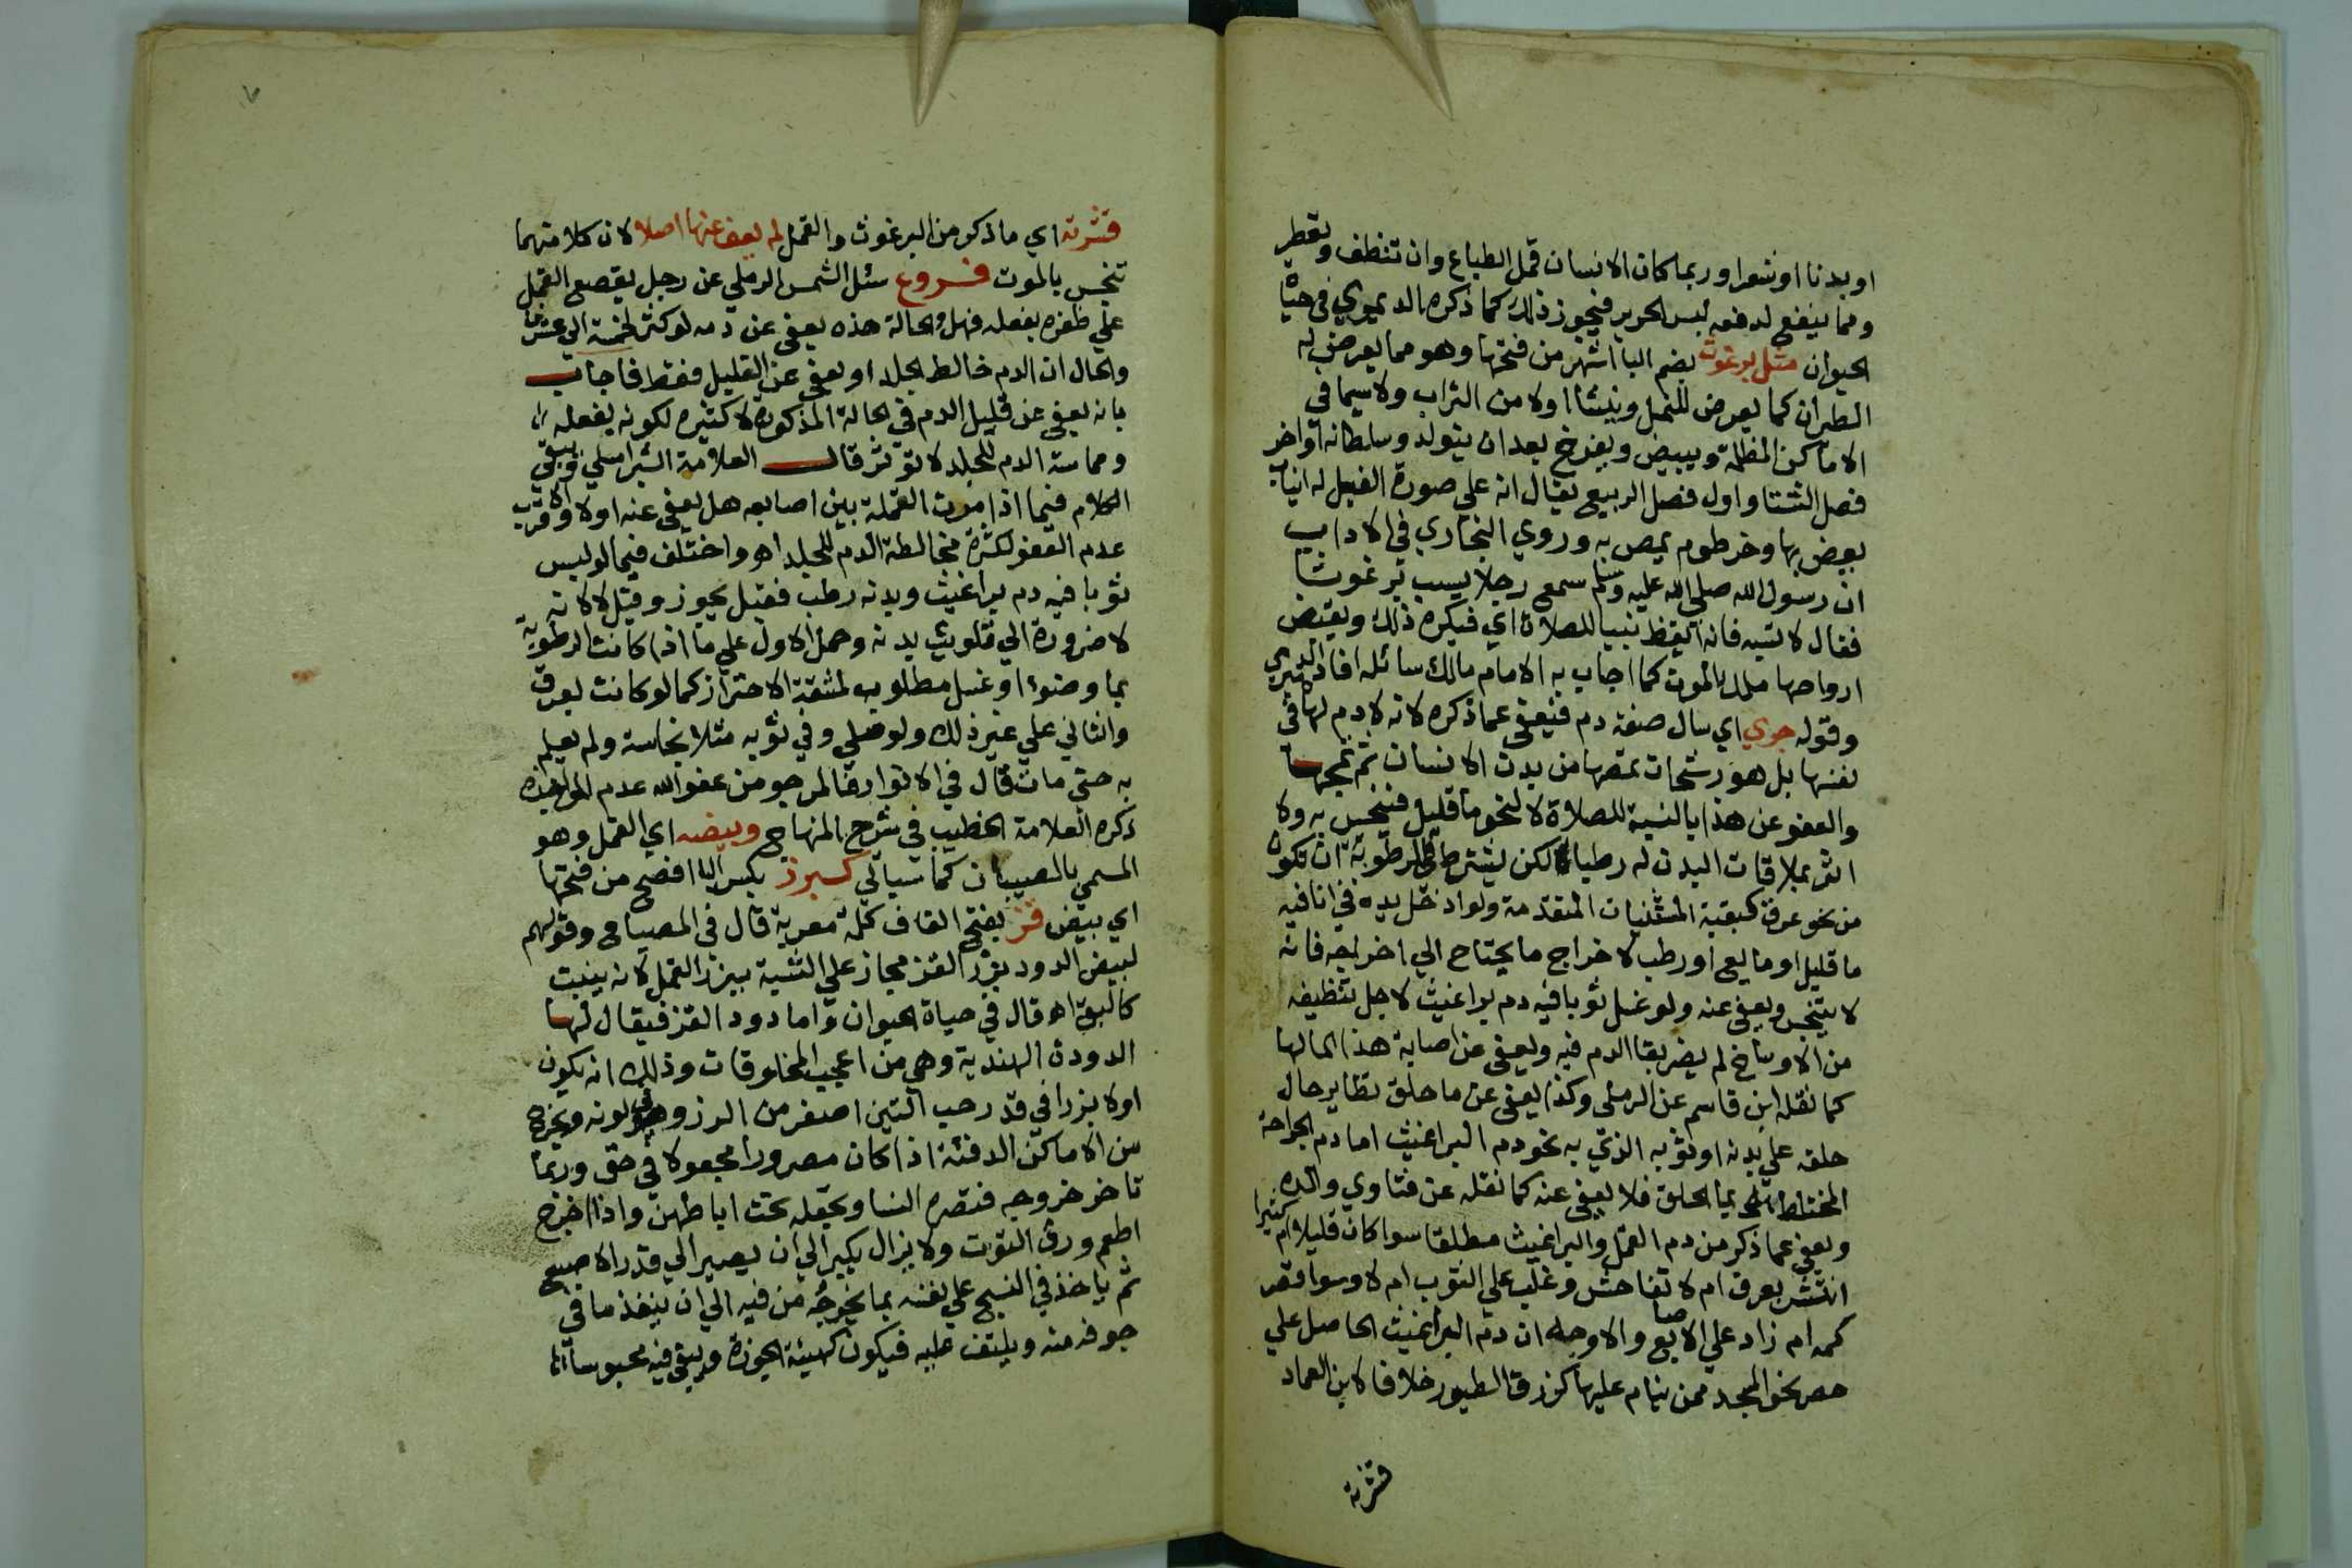 او بدنا او شعرا وربما كان الانسان قمل الطباع وان تنظف وتعطر
ومما ينفع لدفعه لبس الحرير فيجوز ذلك كما ذكره الدميري في حياة
الحيوان مثل برغوث بضم البا اشهر من فتحها وهو مما يعرض له
الطيران كما يعرض للنمل وينشأ اولا من التراب ولا سيما في
الاماكن المظلمة ويبيض ويفرخ بعد ان يتولد وسلطانه اواخر
فصل الشتا واول فصل الربيع يقال انه علي صورة الفيل له انياب
يعض بها وخرطوم يمص به وروي البخاري في الاداب
ان رسول الله صلي الله عليه وسلم سمع رجلا يسب برغوثا
فقال لا تسبه فانه ايقظ نبيا للصلاة اي فيكره ذلك ويقبض
ارواحها ملك الموت كما اجاب به الامام مالك سائله افاده الدميري
وقوله جري اي سال صفة دم فيعفي عما ذكره لانه لا دم لها في
نفسها بل هو رشحات تمصها من بدن الانسان ثم تمجها
والعفو عن هذا بالنسبة للصلاة لا لنحو ما قليل فينجس به ولا
اثر بملاقات البدن له رطبا لكن يشترط في الرطوبة ان تكون
من نحو عرق كبقية المستثنيات المتقدمة ولو ادخل يده في انا فيه
ما قليل او مايع او رطب لاخراج ما يحتاج الي اخراجه فانه
لا يتنجس ويعفي عنه ولو غسل ثوبا فيه دم براغيث لاجل تنظيفه
من الاوساخ لم يضر بقا الدم فيه ويعفي عن اصابة هذا الما لها
كما نقله ابن قاسم عن الرملي وكذا يعفي عن ما حلق تطاير حال
حلقه علي بدنه او ثوبه الذي به نحو دم البراغيث اما دم الجراحة
المختلط بما الحلق فلا يعفي عنه كما نقله عن فتاوي والده
ويعفي عما ذكر من دم القمل والبراغيث مطلقا سوا كان قليلا ام كثيرا
انتشر بعرق ام لا تفاحش وغلب علي الثوب ام لا وسوا قصر
كمه ام زاد علي الاصابع والاوجه ان دم البراغيث الحاصل علي
حصر نحو المسجد ممن ينام عليها كزرق الطيور خلافا لابن العماد
قشرته
قشرته اي ما ذكر من البرغوث والقمل لم يعف عنها اصلا لان كلا منهما
تنجس بالموت فروع سئل الشمس الرملي عن رجل يقصع القمل
علي ظفره بفعله فهل والحالة هذه يعفي عن دمه لو كثر لخمسة الي عشر
والحال ان الدم خالط الجلد او يعفي عن القليل فقط فاجاب
بانه يعفي عن قليل الدم في الحالة المذكورة لا كثيره لكونه بفعله
ومماسة الدم للجلد لا تؤثر قال العلامة الشبراملسي وبقي
الكلام فيما اذا مرت القملة بين اصابعه هل يعفي عنه اولا والاقرب
عدم العفو لكثرة مخالطة الدم للجلد اه واختلف فيما لو لبس
ثوبا فيه دم براغيث وبدنه رطب فقيل يجوز وقيل لا لانه
لا ضرورة الي تلويث بدنه وحمل الاول علي ما اذا كانت الرطوبة
بما وضوء او غسل مطلوب لمشقة الاحتراز كما لو كانت بعرق
والثاني علي غير ذلك ولو صلي وفي ثوبه مثلا نجاسة ولم يعلم
به حتي مات قال في الانوار فالمرجو من عفو الله عدم المواخذه
ذكره العلامة الخطيب في شرح المنهاج وبيضه اي القمل وهو
المسمي بالصيبان كما سياتي كبرز بكسر البا افصح من فتحها
اي بيض قز بفتح القاف كلمة معربة قال في المصباح وقولهم
لبيض الدود بزر القز مجاز علي التشبيه ببزر البقل لانه ينبت
كالبقل اه قال في حياة الحيوان واما دود القز فيقال لها
الدودة الهندية وهي من اعجب المخلوقات وذلك انه يكون
اولا بزرا في قدر حب التين اصغر من الرز وفي لونه ويخرج
من الاماكن الدفئة اذا كان مصرورا مجعولا في حق وربما
تاخر خروجه فتصره النسا وتجعله تحت اباطهن واذا خرج
اطعم ورق التوت ولا يزال يكبر الي ان يصير الي قدر الاصبع
ثم ياخذ في النسج علي نفسه بما يخرجه من فيه الي ان ينفذ ما في
جوفه منه ويلتف عليه فيكون كهيئة الجوزة ويبقي فيه محبوسا